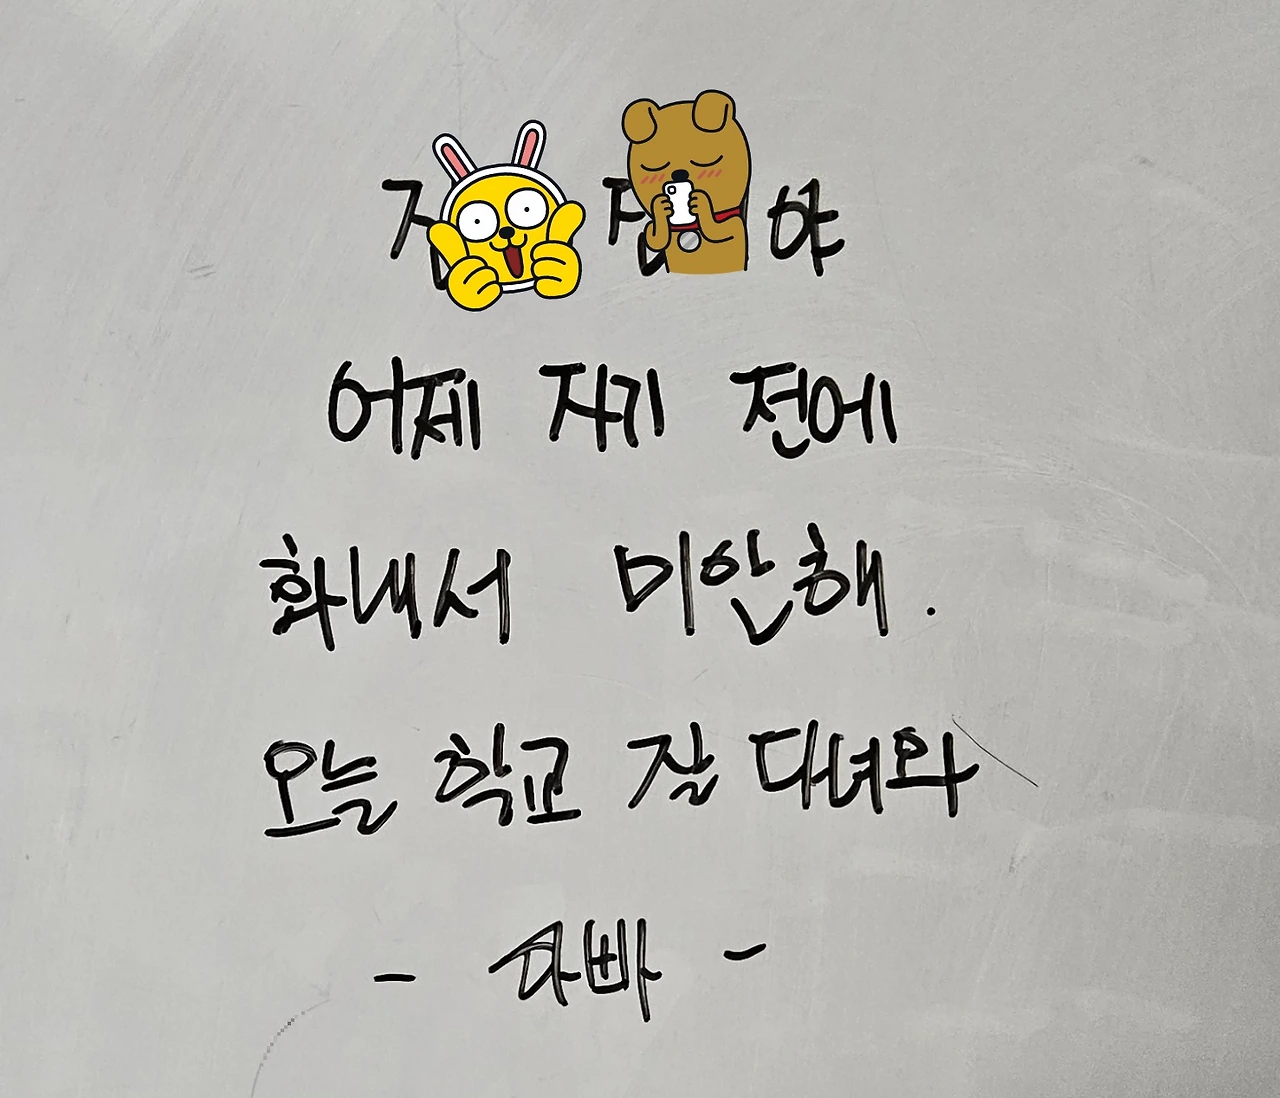 야
어제 자기 전에
화내서 미안해.
오늘 학교 잘 다녀와
- 아빠 -